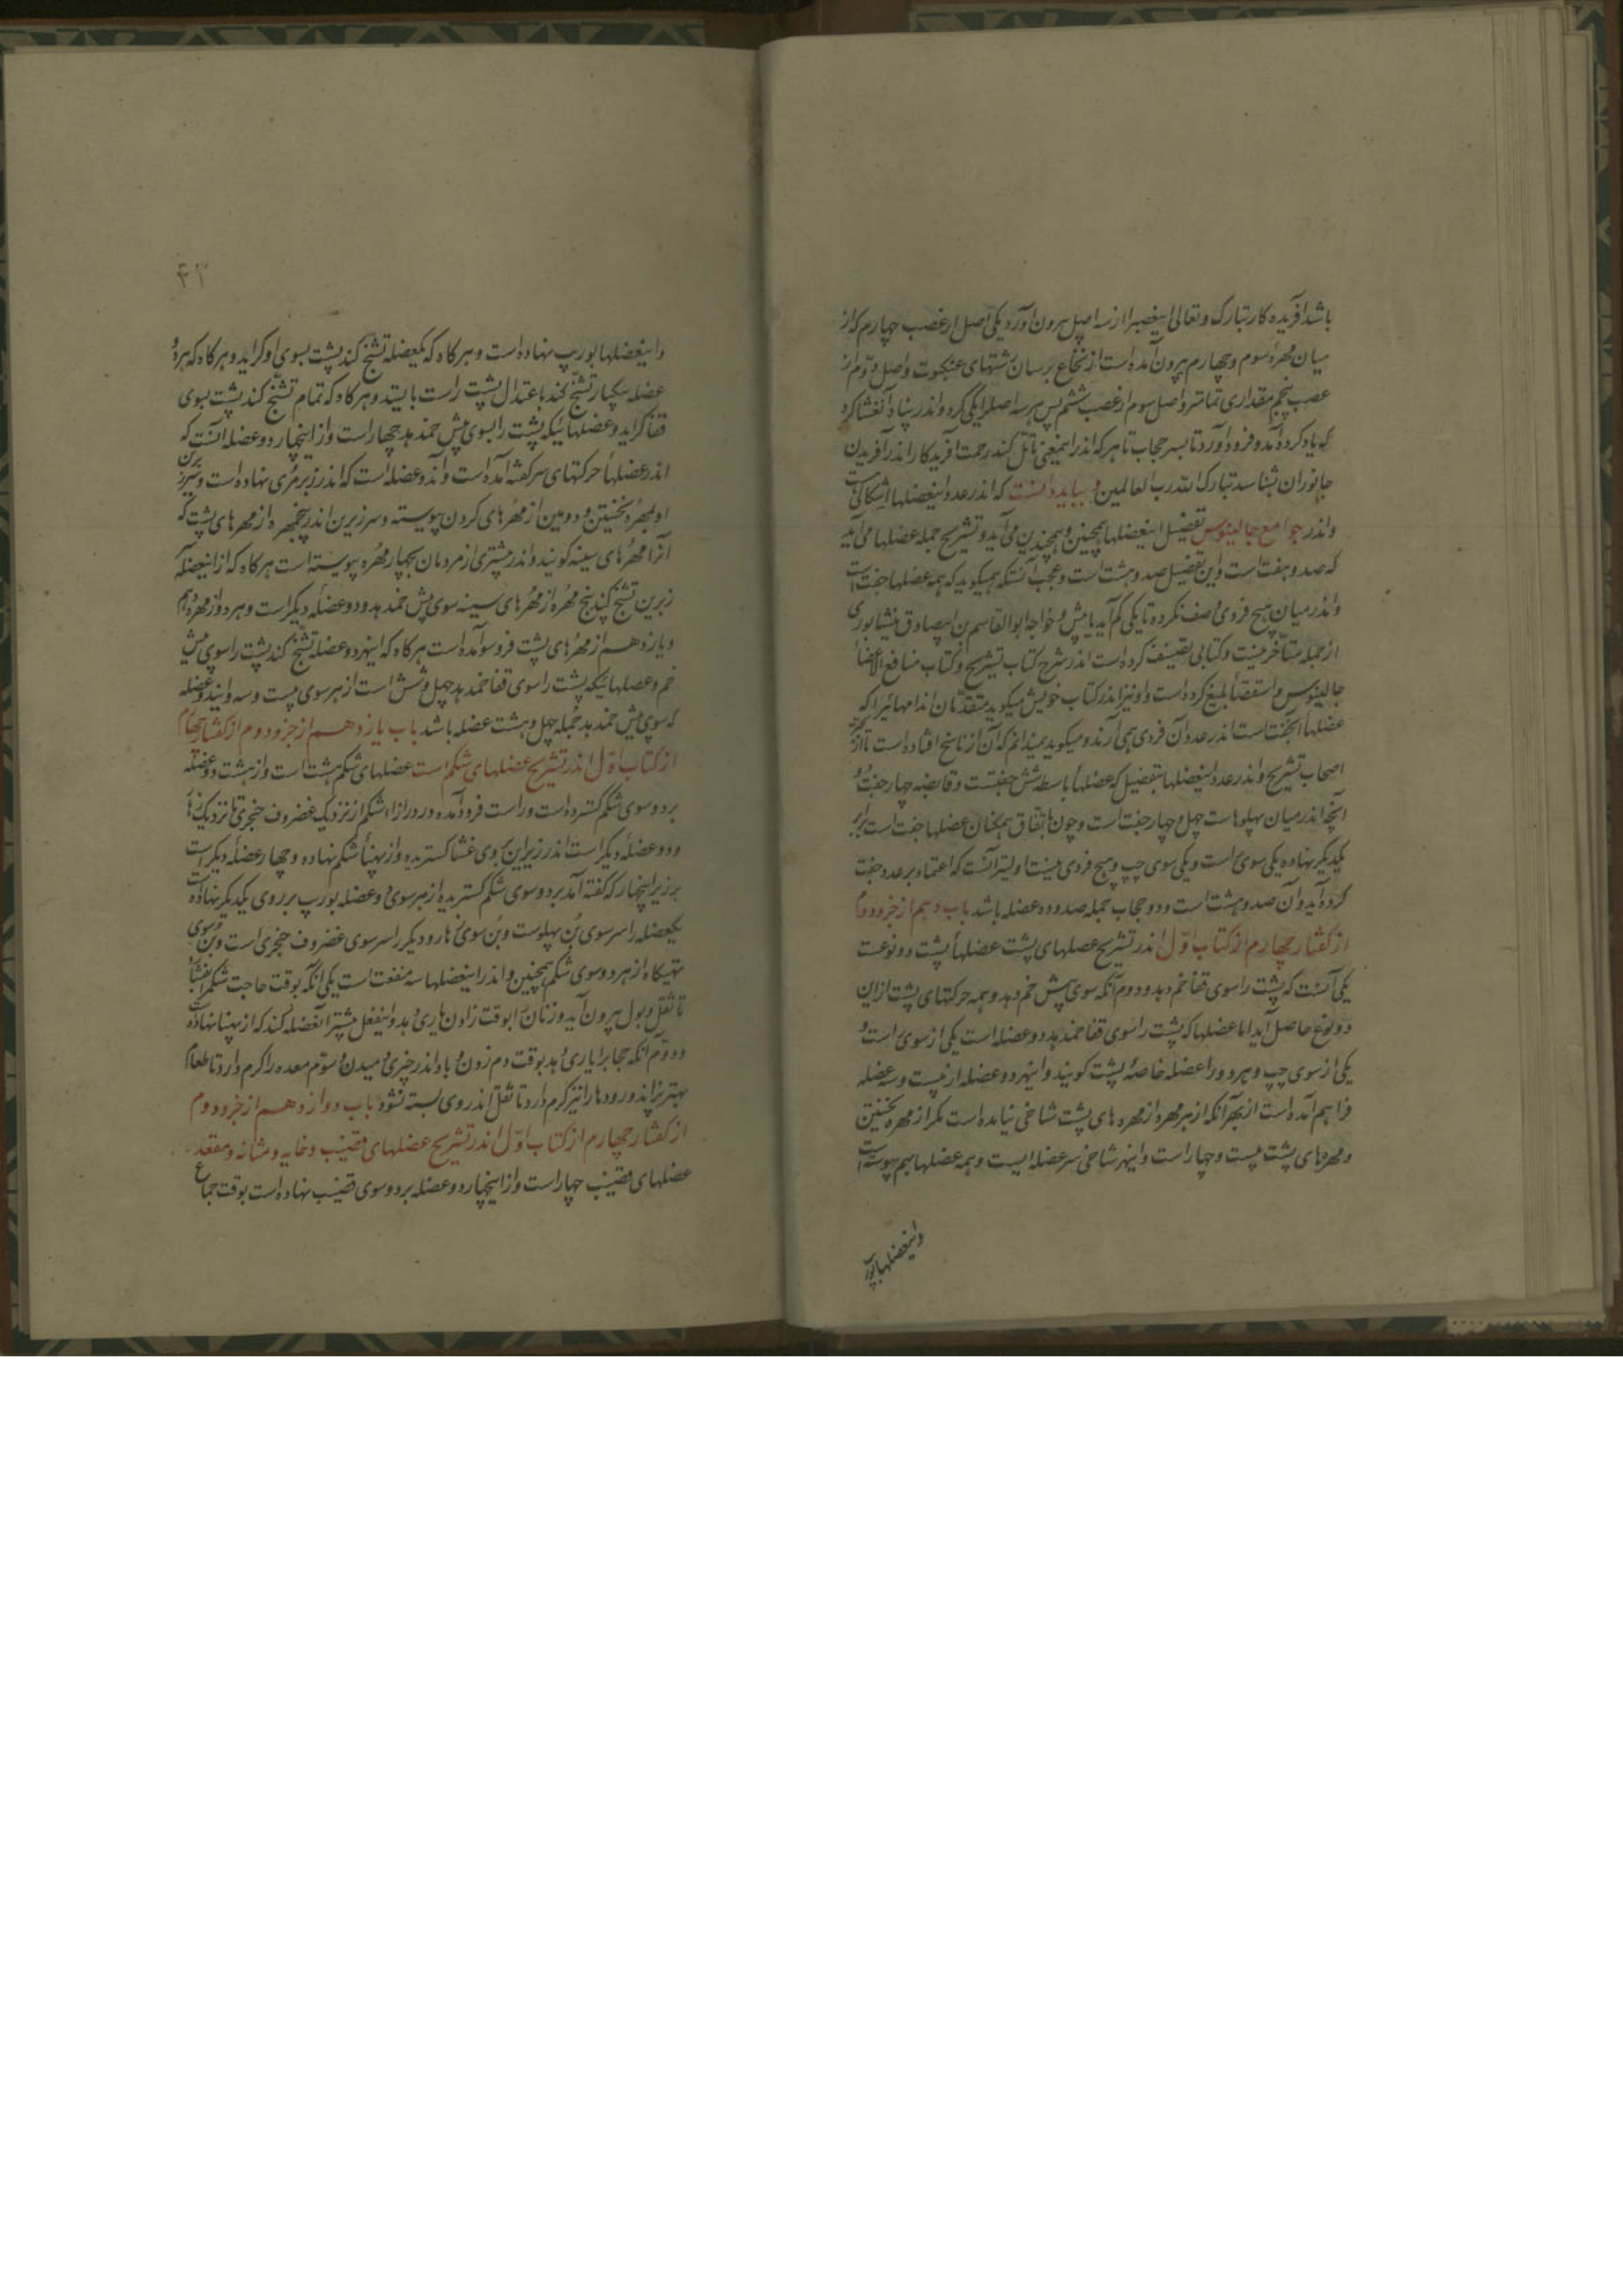 باشد آفریده کار تبارک و تعالی این عصب را از سه اصل بیرون آورد یکی اصل از عصب چهارم که از
میان مهرهٔ سوم و چهارم بیرون آمده است از نخاع بر سان رشتهای عنکبوت و اصل دوّم از
عصب پنجم مقداری تمامتر و اصل سوم از عصب ششم پس هر سه اصل را یکی کرد و اندر پناه آن غشا کرد
که یاد کرده آمد و فرود آورد تا بسر حجاب تا هر که اندر اینمعنی تأمّل کند رحمت آفریدکار اندر آفریدن
جانوران بشناسد تبارک الله رب العالمین و بباید دانست که اندر عدد اینعضلها اشکالی است
و اندر جوامع جالینوس تفضیل اینعضلها همچنین و همچندین می آید و تشریح جمله عضلها می آید
که صد و هفت است و این تفضیل صد و هشت است و عجب آنستکه همیکوید که همه عضلها جفت است
و اندر میان هیچ فردی وصف نکرده تا یکی کم آید یا بیش و خواجه ابوالقاسم بن ابیصادق نیشابوری
از جمله متأخّرینست و کتابی تصنیف کرده است اندر شرح کتاب تشریح و کتاب منافع الاعضاء
جالینوس و استقصأ بلیغ کرده است و او نیز اندر کتاب خویش میکوید متقدّمان اندامهائیرا که
عضلها آن جفت است اندر عدد آن فردی همی آرند و میکوید نمیدانم که آن از ناسخ افتاده است یا از
اصحاب تشریح و اندر عدد اینعضلها بتفضیل که عضلها باسطه شش جفتست و قابضه چهار جفت و
آنچه اندر میان پهلوهاست چهل و چهار جفت است و چون باتفاق همکنان عضلها جفت است برابر
یکدیکر نهاده یکی سوی راست و یکی سوی چپ و هیچ فردی نیست اولیتر آنست که اعتماد بر عدد جفت
کرده آید و آن صد و هشت است و دو حجاب جمله صد و ده عضله باشد باب دهم از جزو دوم
از کفتار چهارم از کتاب اوّل اندر تشریح عضلهای پشت عضلهأ پشت دو نوعست
یکی آنست که پشت را سوی قفا خم دهد و دوم آنکه سوی پیش خم دهد و همه حرکتهای پشت از این
دو نوع حاصل آید اما عضلها که پشت را سوی قفا خمد هد دو عضله است یکی از سوی راست و
یکی از سوی چپ و هر دو را عضله خاصهٔ پشت کویند و اینهر دو عضله از بیست و سه عضله
فراهم آمده است از بهر آنکه از هر مهره از مهره های پشت شاخی نیامده است مکر از مهره نخستین
و مهره های پشت بیست و چهار است و اینهر شاخی سر عضله ایست و همه عضلها بهم پیوسته است
و اینعضلها بورب
۴۳
و اینعضلها بورب نهاده است و هر کاه که یکعضله تشنّج کند پشت بسوی او کراید و هر کاه که هر دو
عضله بیکبار تشنّج کند باعتدال پشت راست بایستد و هر کاه که تمام تشنّج کند پشت بسوی
قفا کراید و عضلهائیکه پشت را بسوی پیش خمد هد چهار است و از اینچهار دو عضله آنست که
اندر عضلهأ حرکتهای سر کفته آمده است و آن دو عضله است که اندر زیر مری نهاده است و سر زبرین
او بمهرهٔ نخستین و دومین از مهرهای کردن پیوسته و سر زیرین اندر پنجمهره از مهرهای پشت که
آنرا مهرهای سینه کویند و اندر بیشتری از مردمان بچهار مهره پیوسته است هر کاه که از اینعضله
زبرین تشنّج کند پنج مهره از مهرهای سینه سوی پیش خمد هد و دو عضله دیکر است و هر دو از مهرهٔ دهم
و یازدهم از مهرهای پشت فرو سو آمده است هر کاه که اینهر دو عضله تشنّج کند پشت را سوی پیش
خم و عضلهائیکه پشت را سوی قفا خمد هد چهل و شش است از هر سوی بیست و سه و این دو عضله
که سوی پیش خمد هد جمله چهل و هشت عضله باشد باب یازدهم از جزو دوم از کفتار چهارم
از کتاب اوّل اندر تشریح عضلهای شکم است عضلهای شکم هشت است و از هشت دو عضله
بر دو سوی شکم کسترده است و راست فرود آمده در درازاء شکم از نزدیک غضروف خنجری تا نزدیک زهار
و دو عضله دیکر است اندر زیر این بروی غشا کستریده و از پهنأ شکم نهاده و چهار عضله دیکر است
بر زبر اینچهار که کفته آمد بر دو سوی شکم کستریده از هر سوی دو عضله بورب بر روی یکدیکر نهاده است
یکعضله را سر سوی بُن پهلوست و بُن سوی زهار و دیکر را سر سوی غضروف خنجری است و بن سوی
تهیکاه از هر دو سوی شکم همچنین و اندر اینعضلها سه منفعت است یکی آنکه بوقت حاجت شکم را بفشارد
تا ثفل و بول بیرون آید و زنان را بوقت زادن یاری دهد و اینفعل بیشتر آنعضله کند که از پهنا نهاده است
و دوّم آنکه حجاب را یاری دهد بوقت دم زدن و باد اندر چیزی دمیدن و سوّم معده را کرم دارد تا طعام
بهتر پزاند و رودها را نیز کرم دارد تا ثفل اندر وی بسته نشود باب دوازدهم از جزو دوم
از کفتار چهارم از کتاب اوّل اندر تشریح عضلهای قضیب و خایه و مثانه و مقعد
عضلهای قضیب چهار است و از اینچهار دو عضله بر دو سوی قضیب نهاده است بوقت جماع